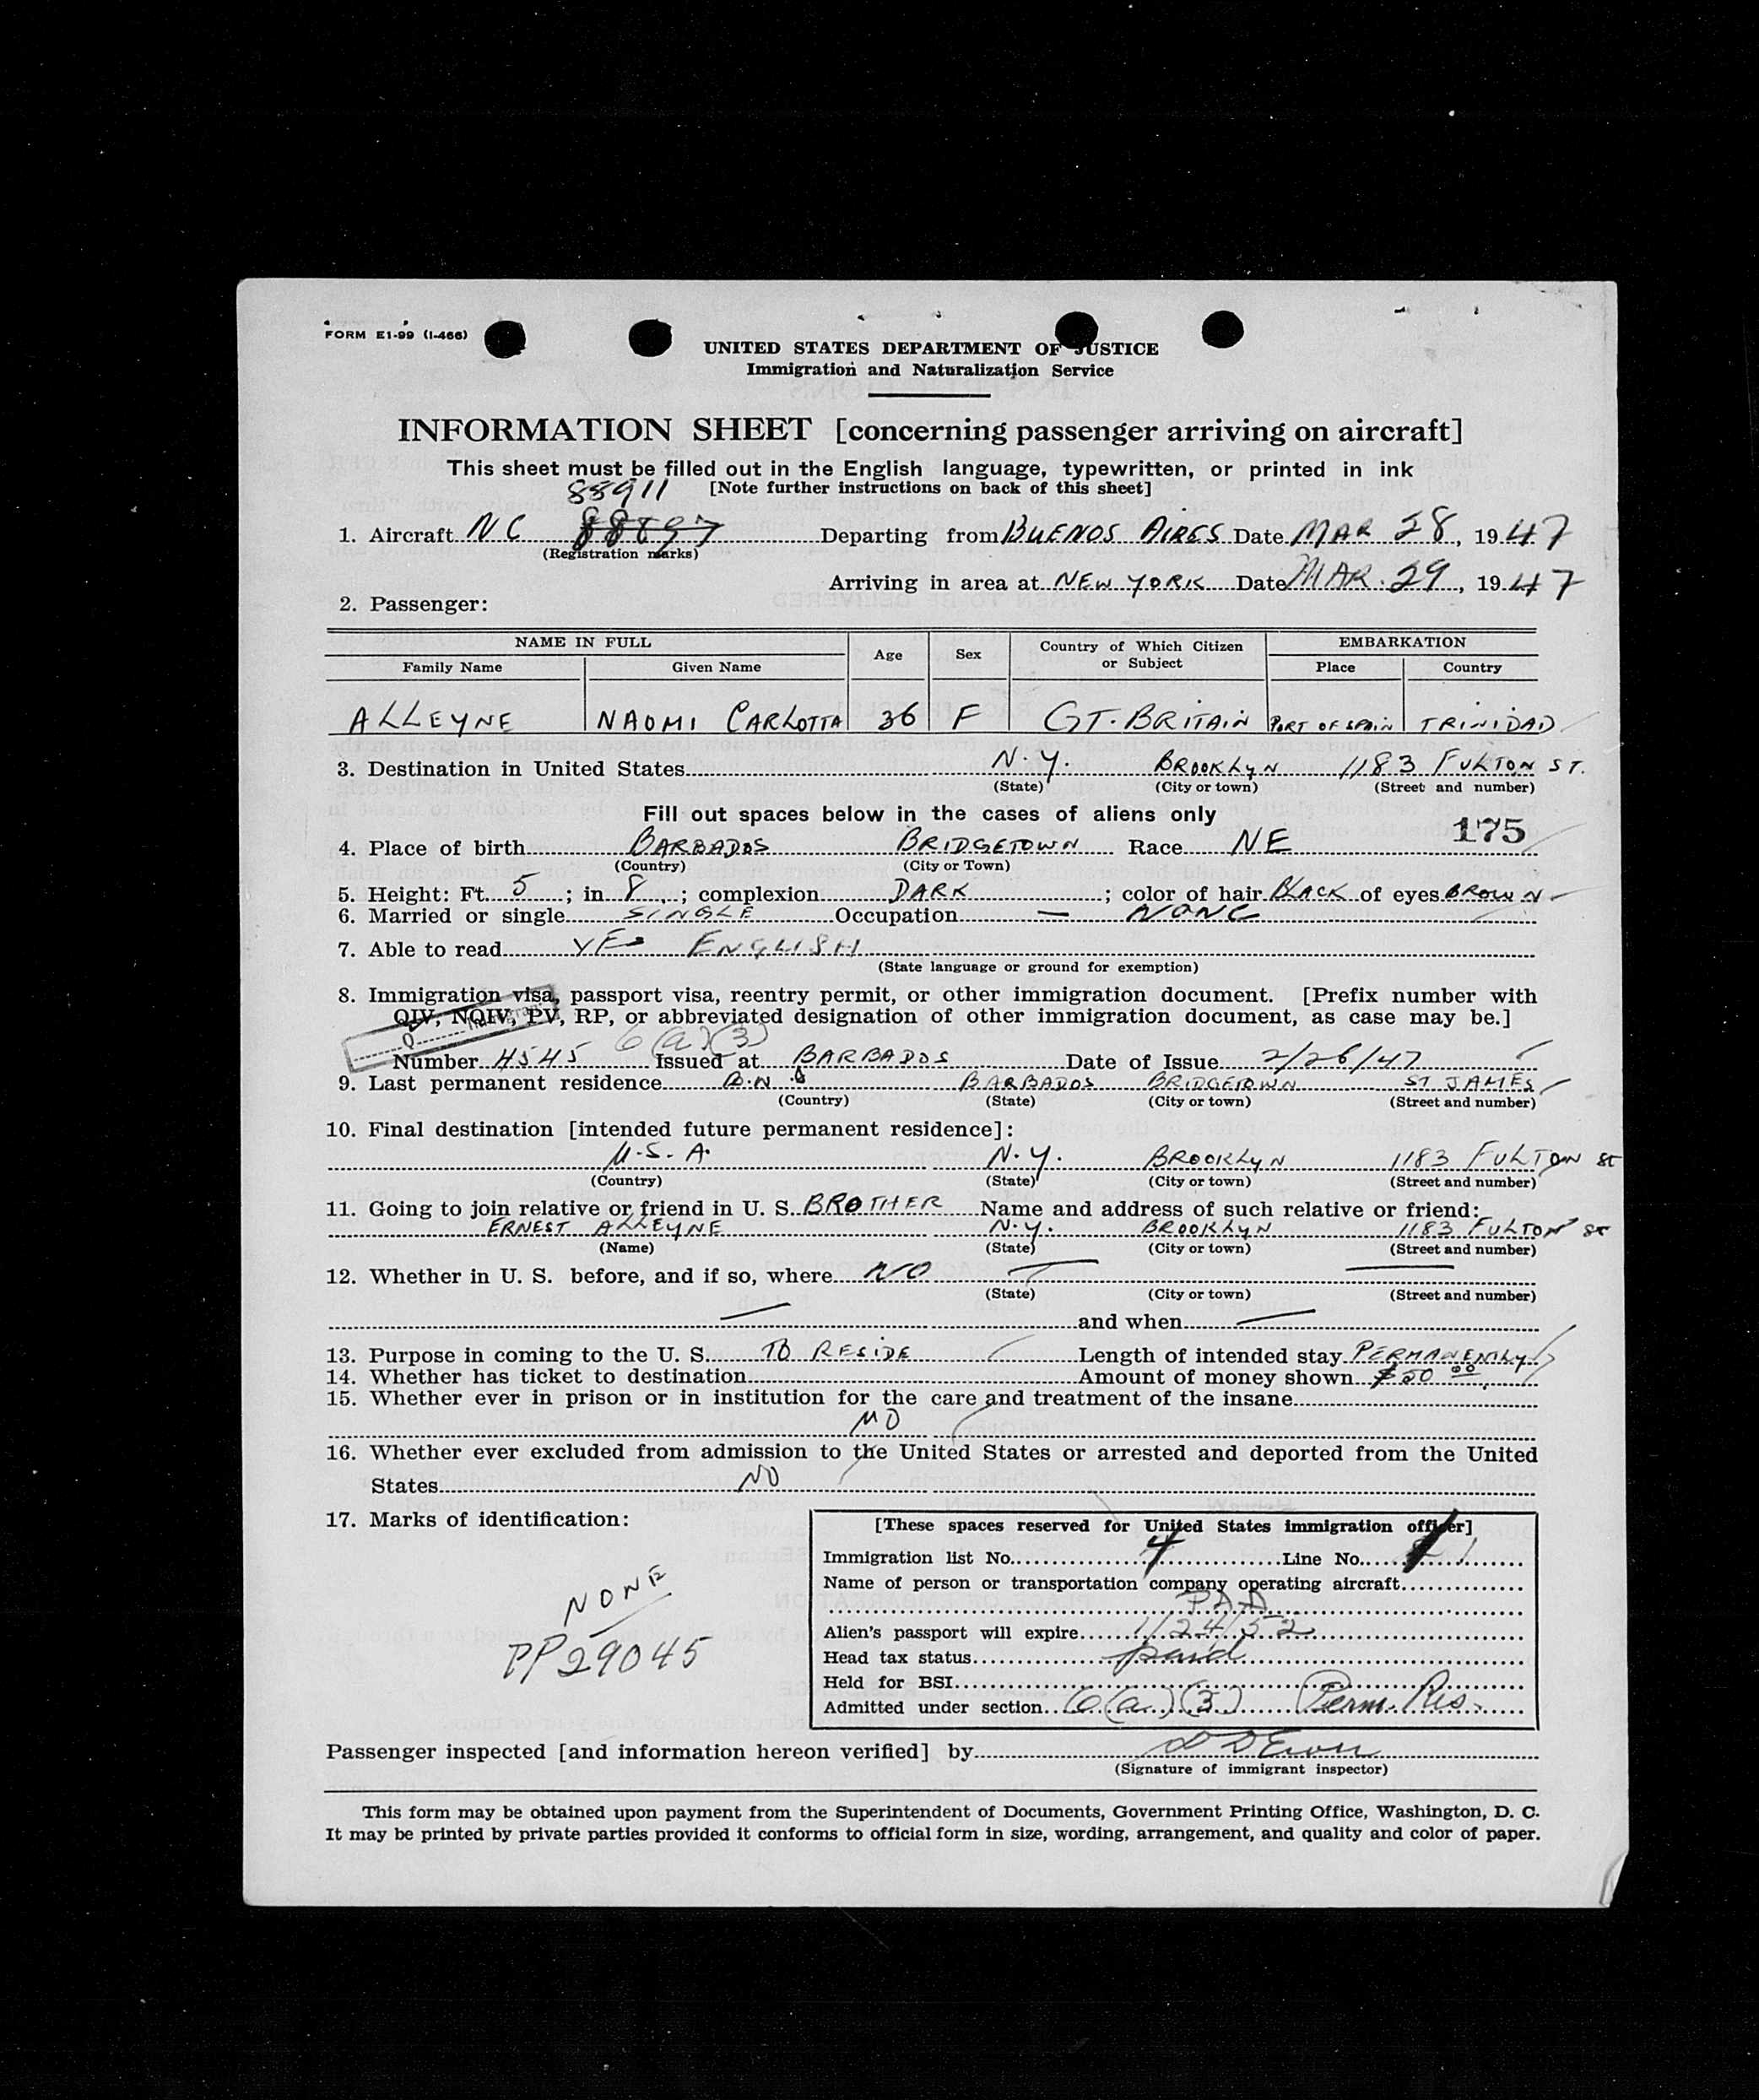 FORM E1-99 (I-466)
UNITED STATES DEPARTMENT OF JUSTICE
Immigration and Naturalization Service
INFORMATION SHEET [concerning passenger arriving on aircraft]
This sheet must be filled out in the English language, typewritten, or printed in ink
88911 [Note further instructions on back of this sheet]
1. Aircraft NC 88897 Departing from BUENOS AIRES Date MAR 28, 1947
(Registration marks)
Arriving in area at NEW YORK Date MAR. 29, 1947
2. Passenger:
NAME IN FULL Age Sex Country of Which Citizen or Subject EMBARKATION
Family Name Given Name Place Country
ALLEYNE NAOMI CARLOTTA 36 F GT. BRITAIN PORT OF SPAIN TRINIDAD
3. Destination in United States N.Y. BROOKLYN 1183 FULTON ST.
(State) (City or town) (Street and number)
Fill out spaces below in the cases of aliens only
175
4. Place of birth BARBADOS BRIDGETOWN Race NE
(Country) (City or Town)
5. Height: Ft. 5; in 8; complexion DARK; color of hair BLACK of eyes BROWN
6. Married or single SINGLE Occupation — NONE
7. Able to read YES ENGLISH
(State language or ground for exemption)
8. Immigration visa, passport visa, reentry permit, or other immigration document. [Prefix number with
QIV, NQIV, PV, RP, or abbreviated designation of other immigration document, as case may be.]
Q Immigrant
6(a)(3)
Number 4545 Issued at BARBADOS Date of Issue 2/26/47
9. Last permanent residence BARBADOS BRIDGETOWN ST JAMES
(Country) (State) (City or town) (Street and number)
10. Final destination [intended future permanent residence]:
U.S.A. N.Y. BROOKLYN 1183 FULTON St
(Country) (State) (City or town) (Street and number)
11. Going to join relative or friend in U. S. BROTHER Name and address of such relative or friend:
ERNEST ALLEYNE N.Y. BROOKLYN 1183 FULTON St
(Name) (State) (City or town) (Street and number)
12. Whether in U. S. before, and if so, where NO — —
(State) (City or town) (Street and number)
— and when —
13. Purpose in coming to the U. S. TO RESIDE Length of intended stay PERMANENTLY
14. Whether has ticket to destination Amount of money shown $50 00
15. Whether ever in prison or in institution for the care and treatment of the insane
NO
16. Whether ever excluded from admission to the United States or arrested and deported from the United
States NO
17. Marks of identification:
NONE
PP29045
[These spaces reserved for United States immigration officer]
Immigration list No. 4 Line No. 1
Name of person or transportation company operating aircraft
PAA
Alien's passport will expire 1/24/52
Head tax status paid
Held for BSI
Admitted under section 6(a)(3) Perm. Res.
Passenger inspected [and information hereon verified] by
(Signature of immigrant inspector)
This form may be obtained upon payment from the Superintendent of Documents, Government Printing Office, Washington, D. C.
It may be printed by private parties provided it conforms to official form in size, wording, arrangement, and quality and color of paper.